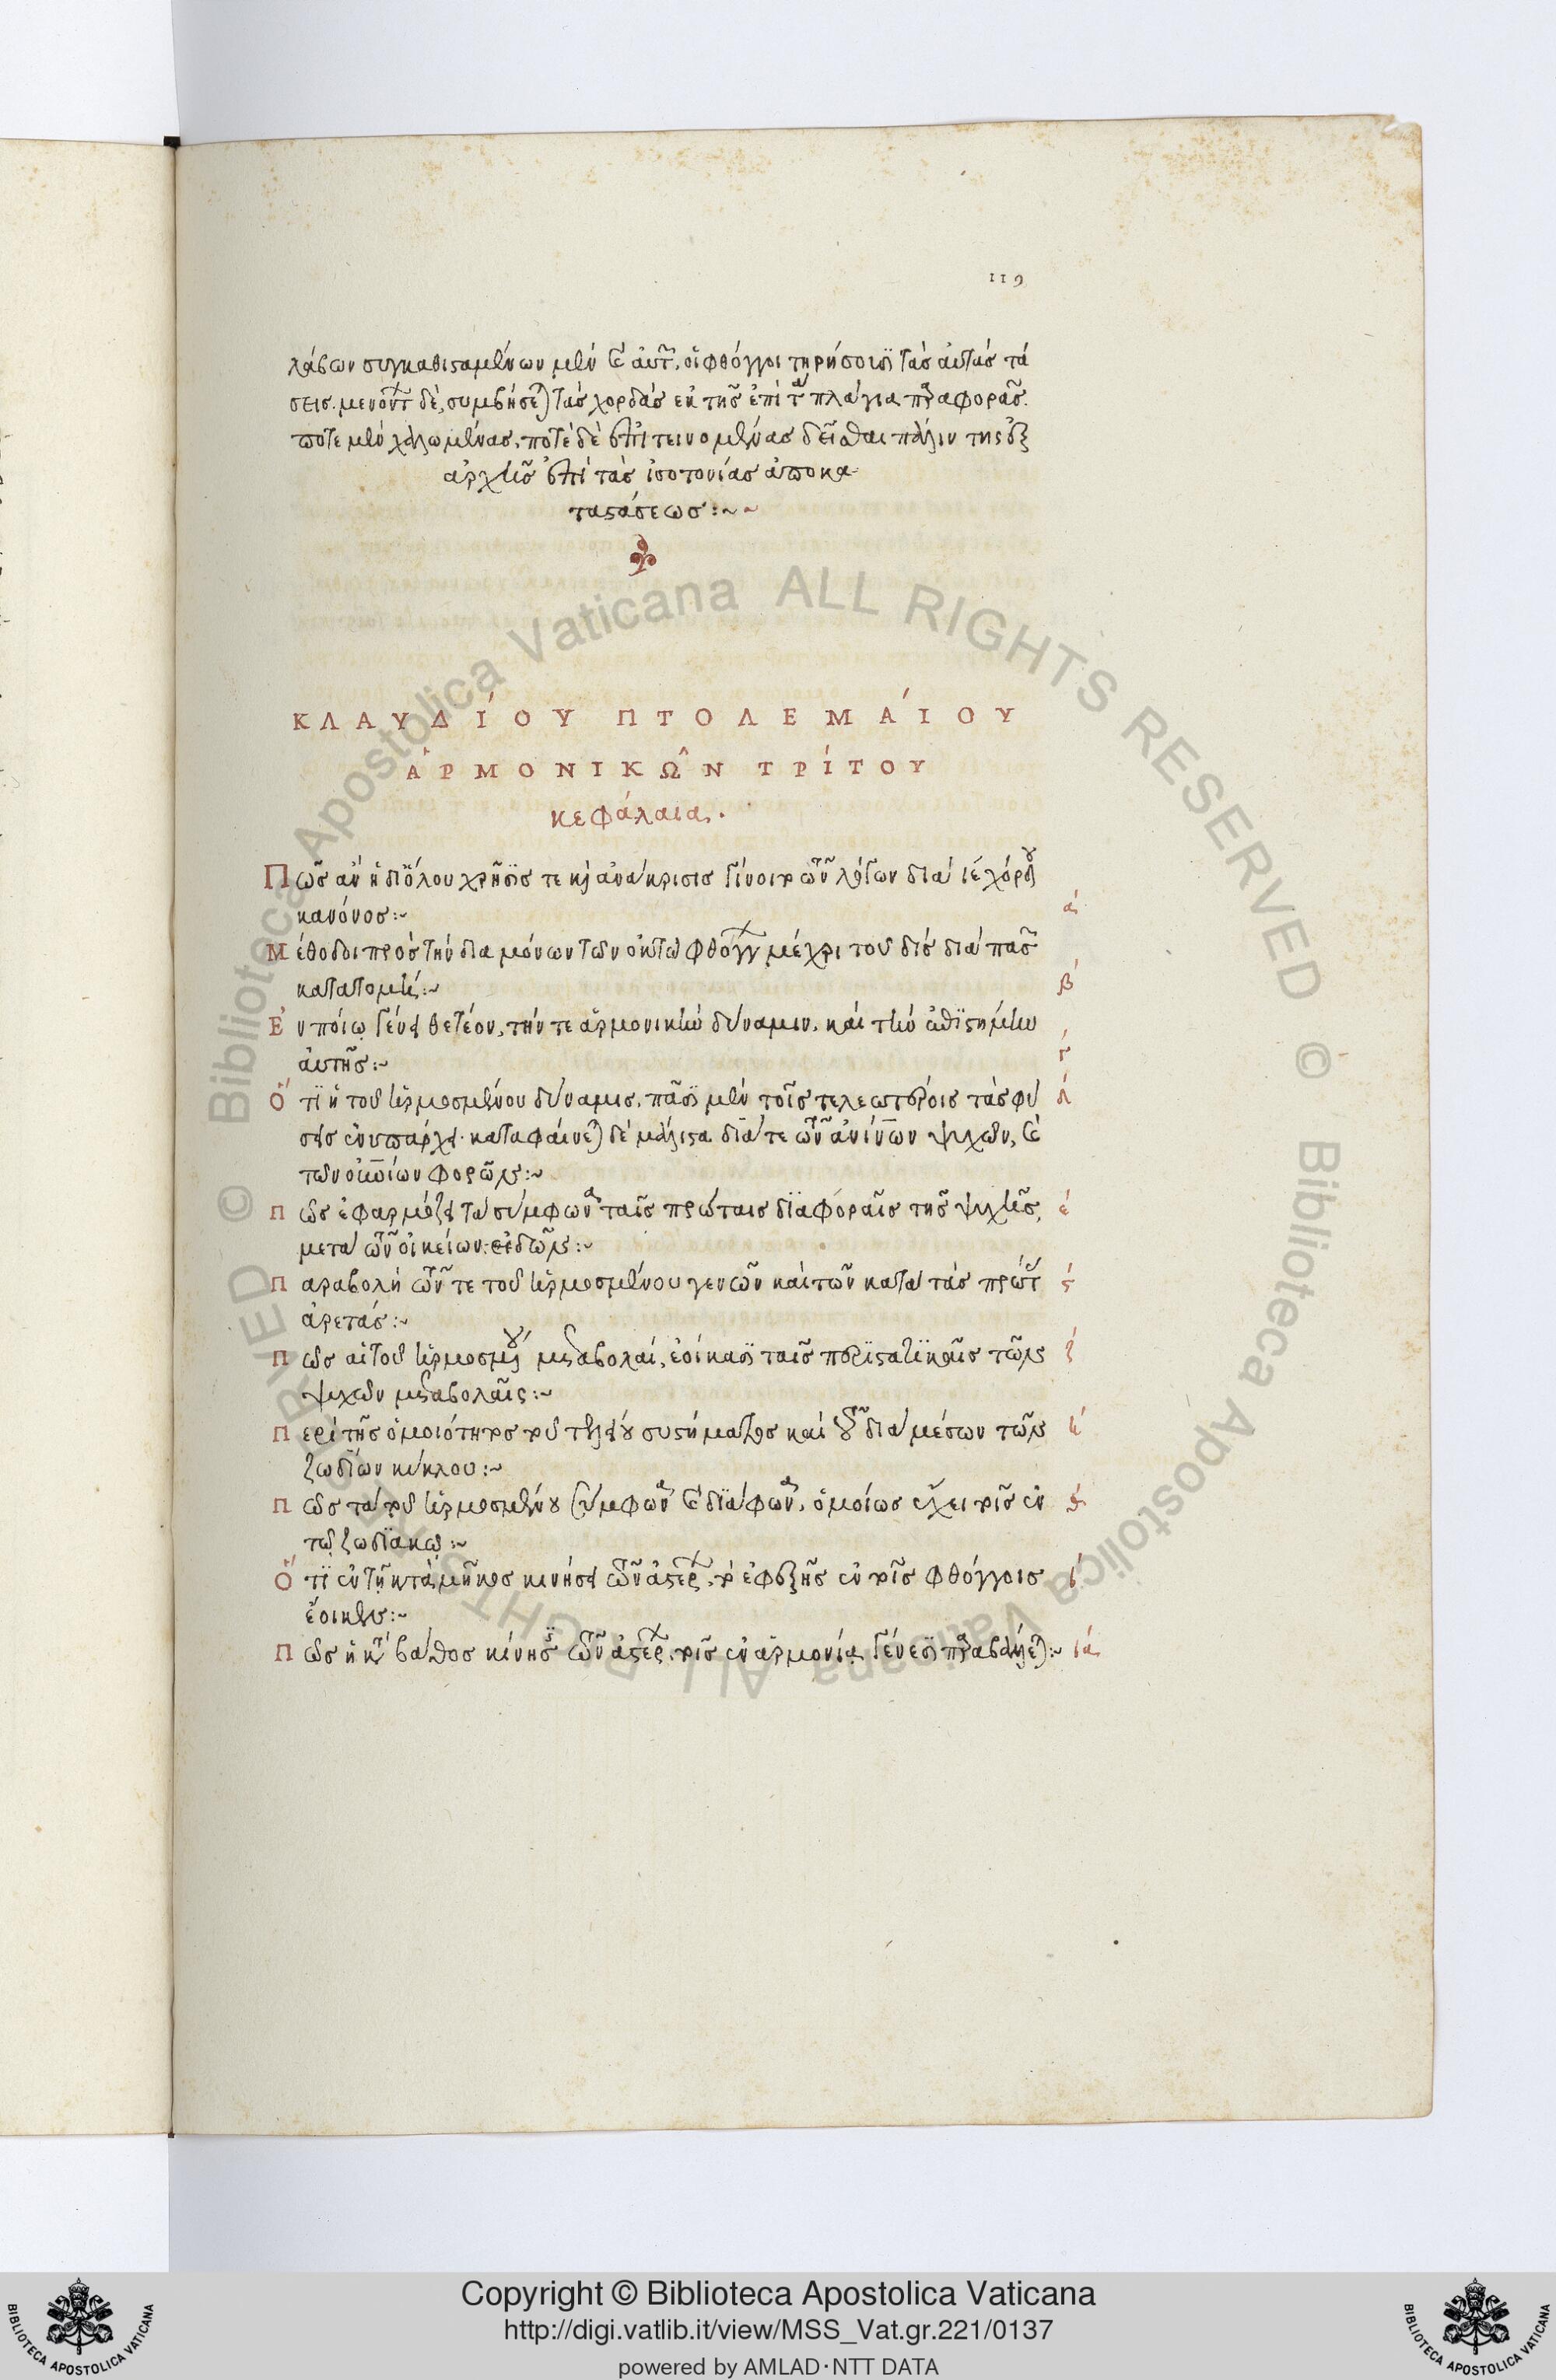 119
λάβων συγκαθισταμένων μὲν καὶ αὐτῶν, οἱ φθόγγοι τηρήσουσι τὰς αὐτὰς τά
σεις. μενόντων δὲ, συμβήσεται τὰς χορδὰς ἐκ τῆς ἐπὶ τὰ πλάγια παραφορᾶς.
ποτὲ μὲν χαλωμένας, ποτὲ δὲ ἐπιτεινομένας δεῖσθαι πάλιν τῆς ἐξ
ἀρχῆς ἐπὶ τὰς ἰσοτονίας ἀποκα
ταστάσεως:~~
ΚΛΑΥΔΊΟΥ ΠΤΟΛΕΜΑΊΟΥ
ἉΡΜΟΝΙΚΩ͂Ν ΤΡΊΤΟΥ
κεφάλαια.
Πῶς ἂν ἡ διόλου χρῆσίς τε καὶ ἀνάκρισις γίνοιτο τῶν λόγων διὰ ιε χόρδου
κανόνος:~ α
Μέθοδοι πρὸς τὴν διὰ μόνων τῶν ὀκτὼ φθόγγων μέχρι τοῦ δὶς διὰ πασῶν
κατατομήν:~ β
Ἐν ποίῳ γένει θετέον, τήν τε ἁρμονικὴν δύναμιν, καὶ τὴν ἐπιστήμην
αὐτῆς:~ γ
Ὅτι ἡ τοῦ ἡρμοσμένου δύναμις, πᾶσι μὲν τοῖς τελεωτέροις τὰς φύ δ
σεις ἐνυπάρχει. καταφαίνεται δὲ μάλιστα διά τε τῶν ἀνθρωπίνων ψυχῶν, καὶ
τῶν οὐρανίων φορῶν:~
Πῶς ἐφαρμόζει τὰ σύμφωνα ταῖς πρώταις διαφοραῖς τῆς ψυχῆς, ε
μετὰ τῶν οἰκείων εἰδῶν:~
Παραβολὴ τῶν τε τοῦ ἡρμοσμένου γενῶν καὶ τῶν κατὰ τὰς πρώτας ϛ
ἀρετάς:~
Πῶς αἱ τοῦ ἡρμοσμένου μεταβολαὶ, ἐοίκασι ταῖς περιστατικαῖς τῶν ζ
ψυχῶν μεταβολαῖς:~
Περὶ τῆς ὁμοιότητος τοῦ τελείου συστήματος καὶ τοῦ διὰ μέσων τῶν η
ζωδίων κύκλου:~
Πῶς τὰ τοῦ ἡρμοσμένου σύμφωνα καὶ διάφωνα, ὁμοίως ἔχει τοῖς ἐν θ
τῷ ζωδιακῷ:~
Ὅτι ἐν τῇ κατὰ μῆκος κινήσει τῶν ἀστέρων, τὸ ἐφεξῆς ἐν τοῖς φθόγγοις ι
ἔοικεν:~
Πῶς ἡ κατὰ βάθος κίνησις τῶν ἀστέρων, τοῖς ἐν ἁρμονίᾳ γένεσι παραβάλλεται:~ ια
Copyright © Biblioteca Apostolica Vaticana
http://digi.vatlib.it/view/MSS_Vat.gr.221/0137
powered by AMLAD·NTT DATA